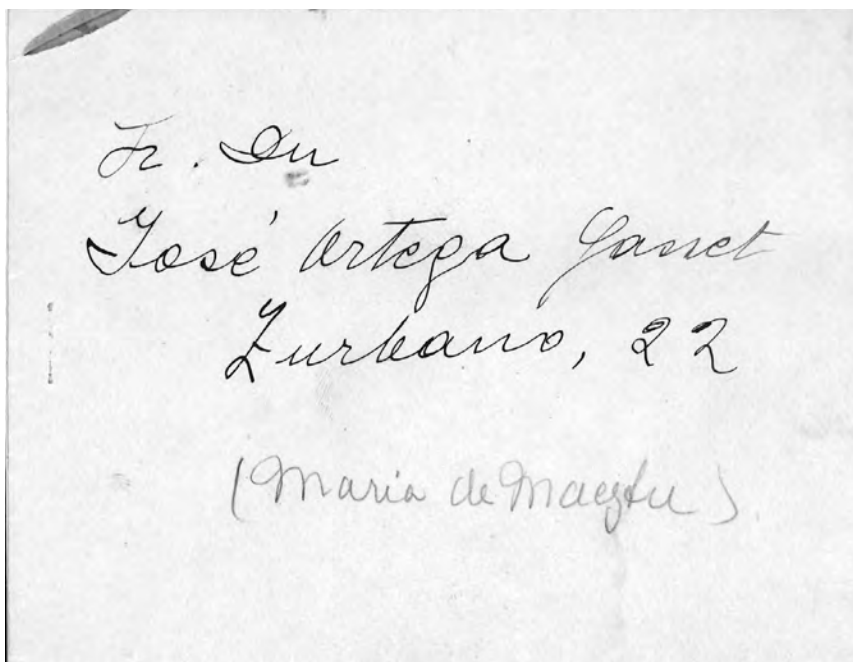 Sr. Dn
José Ortega Gasset
Zurbano, 22
(Maria de Maeztu)